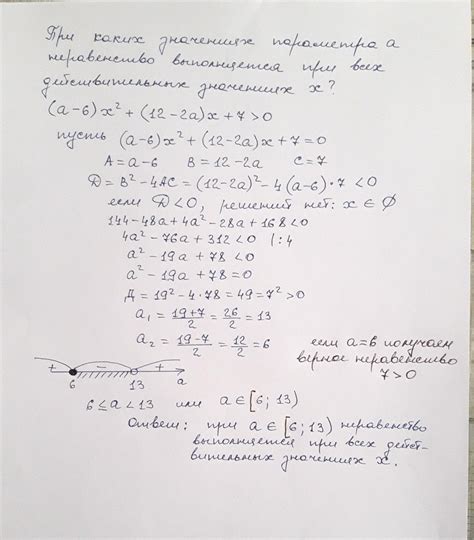 При каких значениях параметра a
неравенство выполняется при всех
действительных значениях x?
(a-6)x²+(12-2a)x+7>0
пусть (a-6)x²+(12-2a)x+7=0
A=a-6 B=12-2a C=7
D=B²-4AC=(12-2a)²-4(a-6)·7<0
если D<0, решений нет: x∈∅
144-48a+4a²-28a+168<0
4a²-76a+312<0 |:4
a²-19a+78<0
a²-19a+78=0
Д=19²-4·78=49=7²>0
a₁=(19+7)/2=26/2=13
a₂=(19-7)/2=12/2=6
если a=6 получаем
верное неравенство
7>0
+ - +
6 13 a
6≤a<13 или a∈[6;13)
Ответ: при a∈[6;13) неравенство
выполняется при всех дейст-
вительных значениях x.